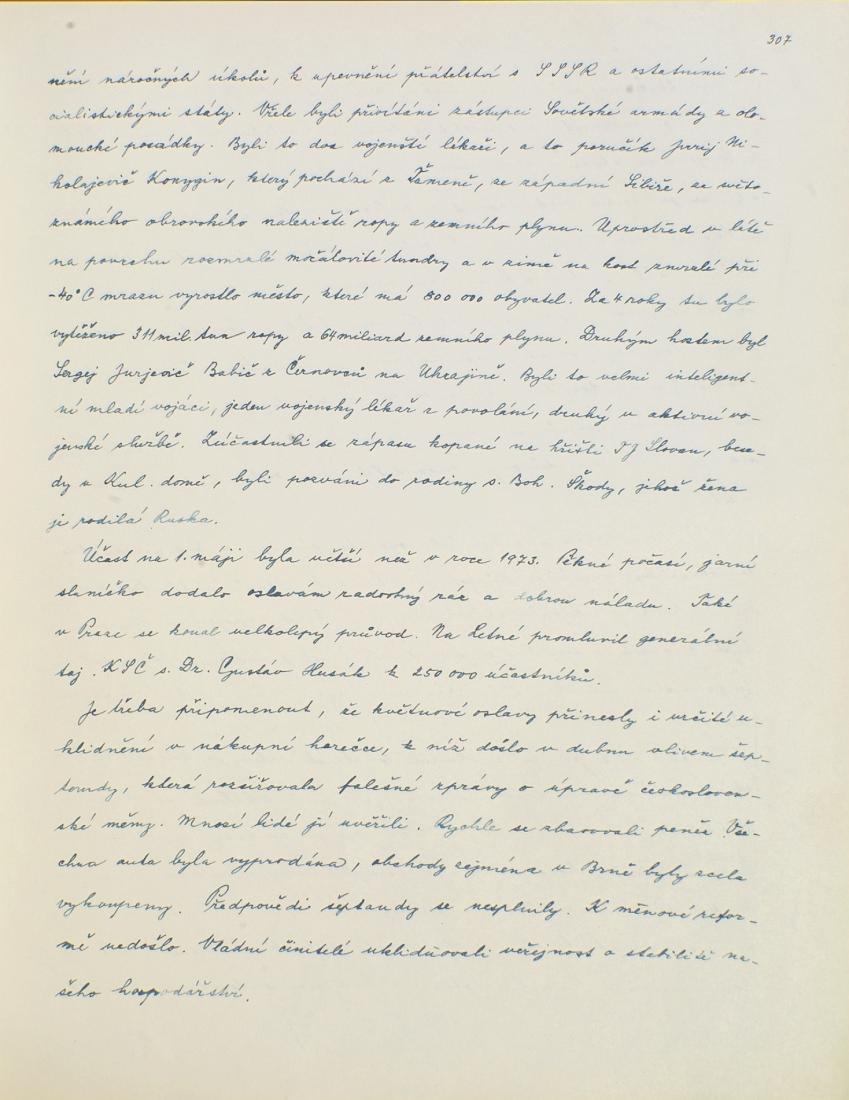 307
nění náročných úkolů, k upevnění přátelství s SSSR a ostatními so-
cialistickými státy. Vřele byli přivítáni zástupci Sovětské armády a olo-
moucké posádky. Byli to dva vojenští lékaři, a to poručík Jurij Ni-
kolajevič Konygin, který pochází z Ťameně, ze západní Sibiře, ze světo-
známého obrovského naleziště ropy a zemního plynu. Uprostřed v létě
na povrchu rozmrzlé močálovité tundry a v zimě na kost zmrzlé při
-40°C mrazu vyrostlo město, které má 800 000 obyvatel. Za 4 roky tu bylo
vytěženo 311 mil. tun ropy a 64 miliard zemního plynu. Druhým hostem byl
Sergej Jurjevič Babič z Černovců na Ukrajině. Byli to velmi inteligent-
ní mladí vojáci, jeden vojenský lékař z povolání, druhý v aktivní vo-
jenské službě. Zúčastnili se zápasu kopané na hřišti TJ Slovan, bese-
dy v Kul. domě, byli pozváni do rodiny s. Boh. Škody, jehož žena
je rodilá Ruska.
Účast na 1. máji byla větší než v roce 1973. Pěkné počasí, jarní
sluníčko dodalo oslavám radostný ráz a dobrou náladu. Také
v Praze se konal velkolepý průvod. Na Letné promluvil generální
taj. KSČ s. Dr. Gustáv Husák k 250 000 účastníků.
Je třeba připomenout, že květnové oslavy přinesly i určité u-
klidnění v nákupní horečce, k níž došlo v dubnu vlivem šep-
tandy, která rozšiřovala falešné zprávy o úpravě českosloven-
ské měny. Mnozí lidé jí uvěřili. Rychle se zbavovali peněz. Vše-
chna auta byla vyprodána, obchody zejména v Brně byly zcela
vykoupeny. Předpovědi šeptandy se nesplnily. K měnové refor-
mě nedošlo. Vládní činitelé uklidňovali veřejnost o stabilitě na-
šeho hospodářství.